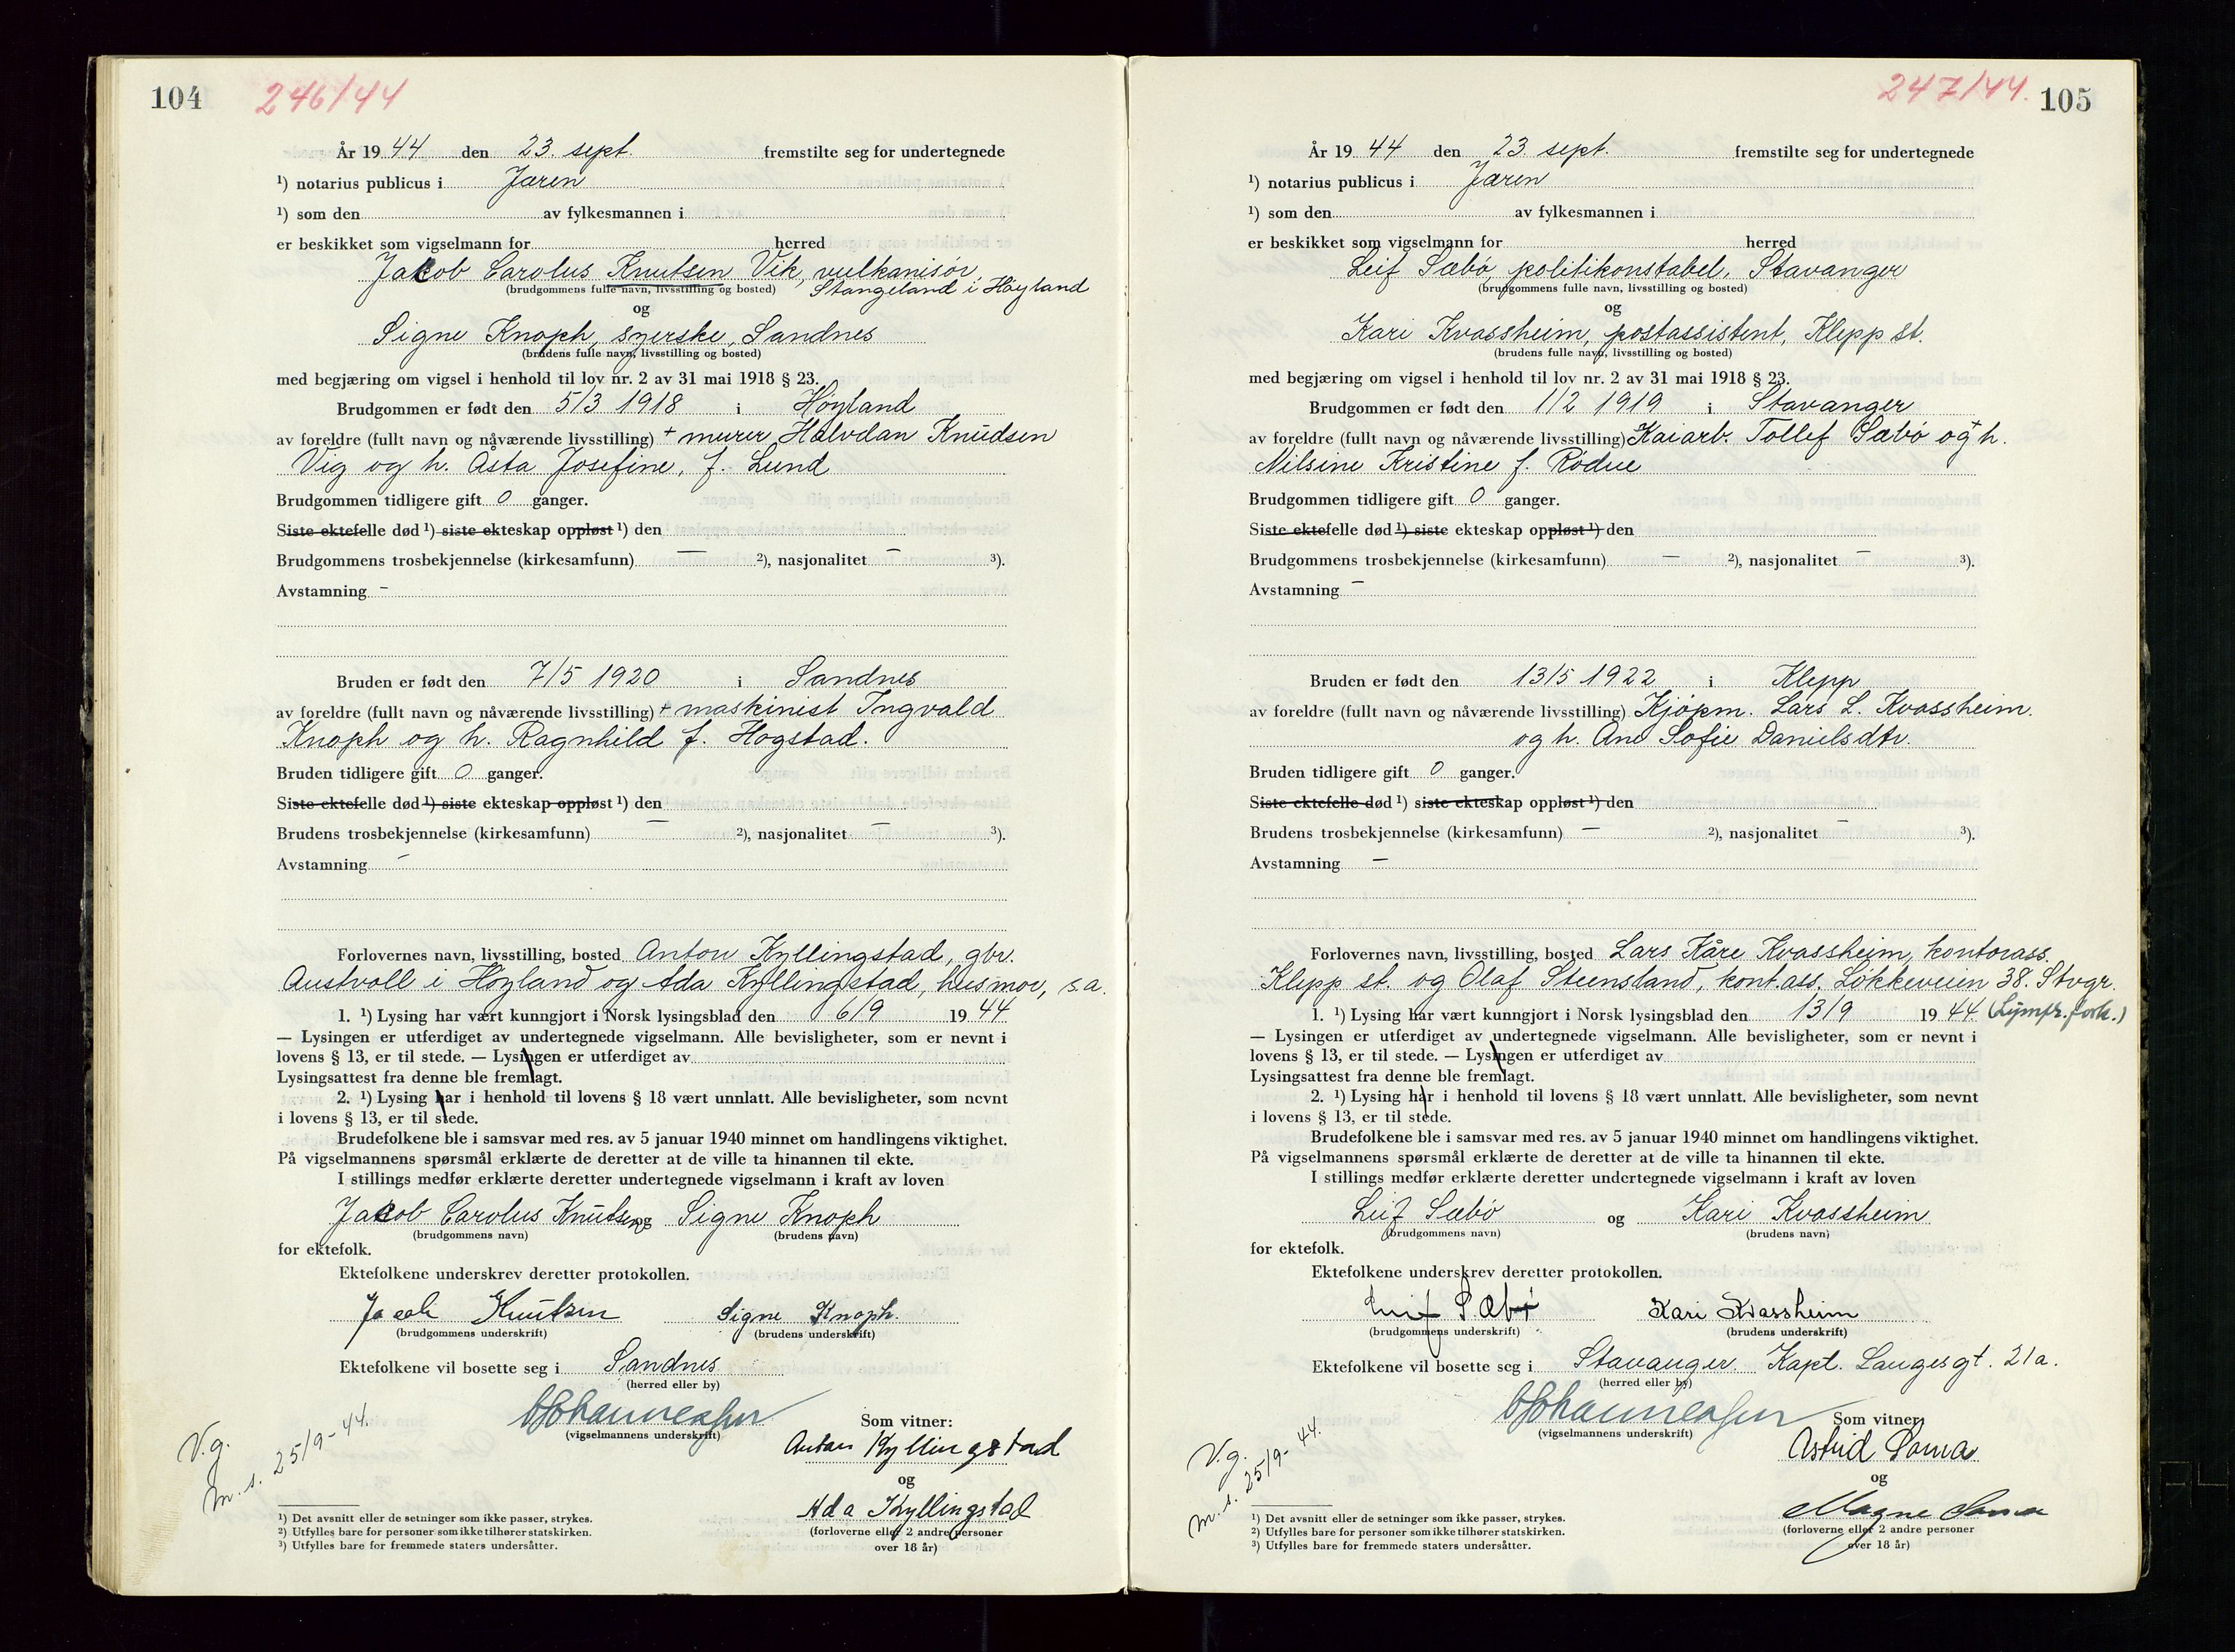 104 246/44
År 19 44 den 23. sept. fremstilte seg for undertegnede
¹) notarius publicus i Jæren
¹) som den av fylkesmannen i
er beskikket som vigselmann for herred
Jakob Carolus Knutsen Vik, vulkanisör,
(brudgommens fulle navn, livsstilling og bosted) Stangeland i Höyland
og
Signe Knoph, syerske, Sandnes
(brudens fulle navn, livsstilling og bosted)
med begjæring om vigsel i henhold til lov nr. 2 av 31 mai 1918 § 23.
Brudgommen er født den 5/3 1918 i Höyland
av foreldre (fullt navn og nåværende livsstilling) + murer Halvdan Knudsen
Vig og h. Åsta Josefine, f. Lund
Brudgommen tidligere gift 0 ganger.
Siste ektefelle død ¹) siste ekteskap oppløst ¹) den
Brudgommens trosbekjennelse (kirkesamfunn) — ²), nasjonalitet — ³).
Avstamning -
Bruden er født den 7/5 1920 i Sandnes
av foreldre (fullt navn og nåværende livsstilling) + maskinist Ingvald
Knoph og h. Ragnhild f. Hogstad.
Bruden tidligere gift 0 ganger.
Siste ektefelle død ¹) siste ekteskap oppløst ¹) den
Brudens trosbekjennelse (kirkesamfunn) — ²), nasjonalitet — ³).
Avstamning -
Forlovernes navn, livsstilling, bosted Anton Kyllingstad, gbr.
Austvoll i Höyland og Ada Kyllingstad, husmor, s.a.
1. ¹) Lysing har vært kunngjort i Norsk lysingsblad den 6/9 19 44
— Lysingen er utferdiget av undertegnede vigselmann. Alle bevisligheter, som er nevnt i
lovens § 13, er til stede. — Lysingen er utferdiget av
Lysingsattest fra denne ble fremlagt.
2. ¹) Lysing har i henhold til lovens § 18 vært unnlatt. Alle bevisligheter, som nevnt
i lovens § 13, er til stede.
Brudefolkene ble i samsvar med res. av 5 januar 1940 minnet om handlingens viktighet.
På vigselmannens spørsmål erklærte de deretter at de ville ta hinannen til ekte.
I stillings medfør erklærte deretter undertegnede vigselmann i kraft av loven
Jakob Carolus Knutsen og Signe Knoph
(brudgommens navn) (brudens navn)
for ektefolk.
Ektefolkene underskrev deretter protokollen.
Jacob Knutsen Signe Knoph.
(brudgommens underskrift) (brudens underskrift)
Ektefolkene vil bosette seg i Sandnes
(herred eller by)
(vigselmannens underskrift) Som vitner:
Anton Kyllingstad
og
Ada Kyllingstad
(forloverne eller 2 andre personer
over 18 år)
V.g.
m. s. 25/9-44.
¹) Det avsnitt eller de setninger som ikke passer, strykes.
²) Utfylles bare for personer som ikke tilhører statskirken.
³) Utfylles bare for fremmede staters undersåtter.
247/44. 105
År 19 44 den 23 sept. fremstilte seg for undertegnede
¹) notarius publicus i Jæren
¹) som den av fylkesmannen i
er beskikket som vigselmann for herred
Leif Sæbö, politikonstabel, Stavanger
(brudgommens fulle navn, livsstilling og bosted)
og
Kari Kvassheim, postassistent, Klepp st.
(brudens fulle navn, livsstilling og bosted)
med begjæring om vigsel i henhold til lov nr. 2 av 31 mai 1918 § 23.
Brudgommen er født den 1/2 1919 i Stavanger
av foreldre (fullt navn og nåværende livsstilling) Kaiarb. Tollef Sæbö og + h.
Nilsine Kristine f. Rödne
Brudgommen tidligere gift 0 ganger.
Siste ektefelle død ¹) siste ekteskap oppløst ¹) den
Brudgommens trosbekjennelse (kirkesamfunn) — ²), nasjonalitet — ³).
Avstamning -
Bruden er født den 13/5 1922 i Klepp
av foreldre (fullt navn og nåværende livsstilling) Kjöpm. Lars L. Kvassheim.
og h. Ane Sofie Danielsdtr.
Bruden tidligere gift 0 ganger.
Siste ektefelle død ¹) siste ekteskap oppløst ¹) den
Brudens trosbekjennelse (kirkesamfunn) — ²), nasjonalitet - ³).
Avstamning —
Forlovernes navn, livsstilling, bosted Lars Kåre Kvassheim, kontorass.
Klepp st. og Olaf Steensland, kont.ass. Lökkeveien 38. Stvgr.
1. ¹) Lysing har vært kunngjort i Norsk lysingsblad den 13/9 19 44
— Lysingen er utferdiget av undertegnede vigselmann. Alle bevisligheter, som er nevnt i
lovens § 13, er til stede. — Lysingen er utferdiget av
Lysingsattest fra denne ble fremlagt.
2. ¹) Lysing har i henhold til lovens § 18 vært unnlatt. Alle bevisligheter, som nevnt
i lovens § 13, er til stede.
Brudefolkene ble i samsvar med res. av 5 januar 1940 minnet om handlingens viktighet.
På vigselmannens spørsmål erklærte de deretter at de ville ta hinannen til ekte.
I stillings medfør erklærte deretter undertegnede vigselmann i kraft av loven
Leif Sæbö og Kari Kvassheim
(brudgommens navn) (brudens navn)
for ektefolk.
Ektefolkene underskrev deretter protokollen.
Leif Sæbö Kari Kvassheim
(brudgommens underskrift) (brudens underskrift)
Ektefolkene vil bosette seg i Stavanger. Kapt. Langesgt. 21a.
(herred eller by)
(vigselmannens underskrift) Som vitner:
Astrid Soma
og
Magne Soma
(forloverne eller 2 andre personer
over 18 år)
V.g.
m. s. 25/9-44.
¹) Det avsnitt eller de setninger som ikke passer, strykes.
²) Utfylles bare for personer som ikke tilhører statskirken.
³) Utfylles bare for fremmede staters undersåtter.